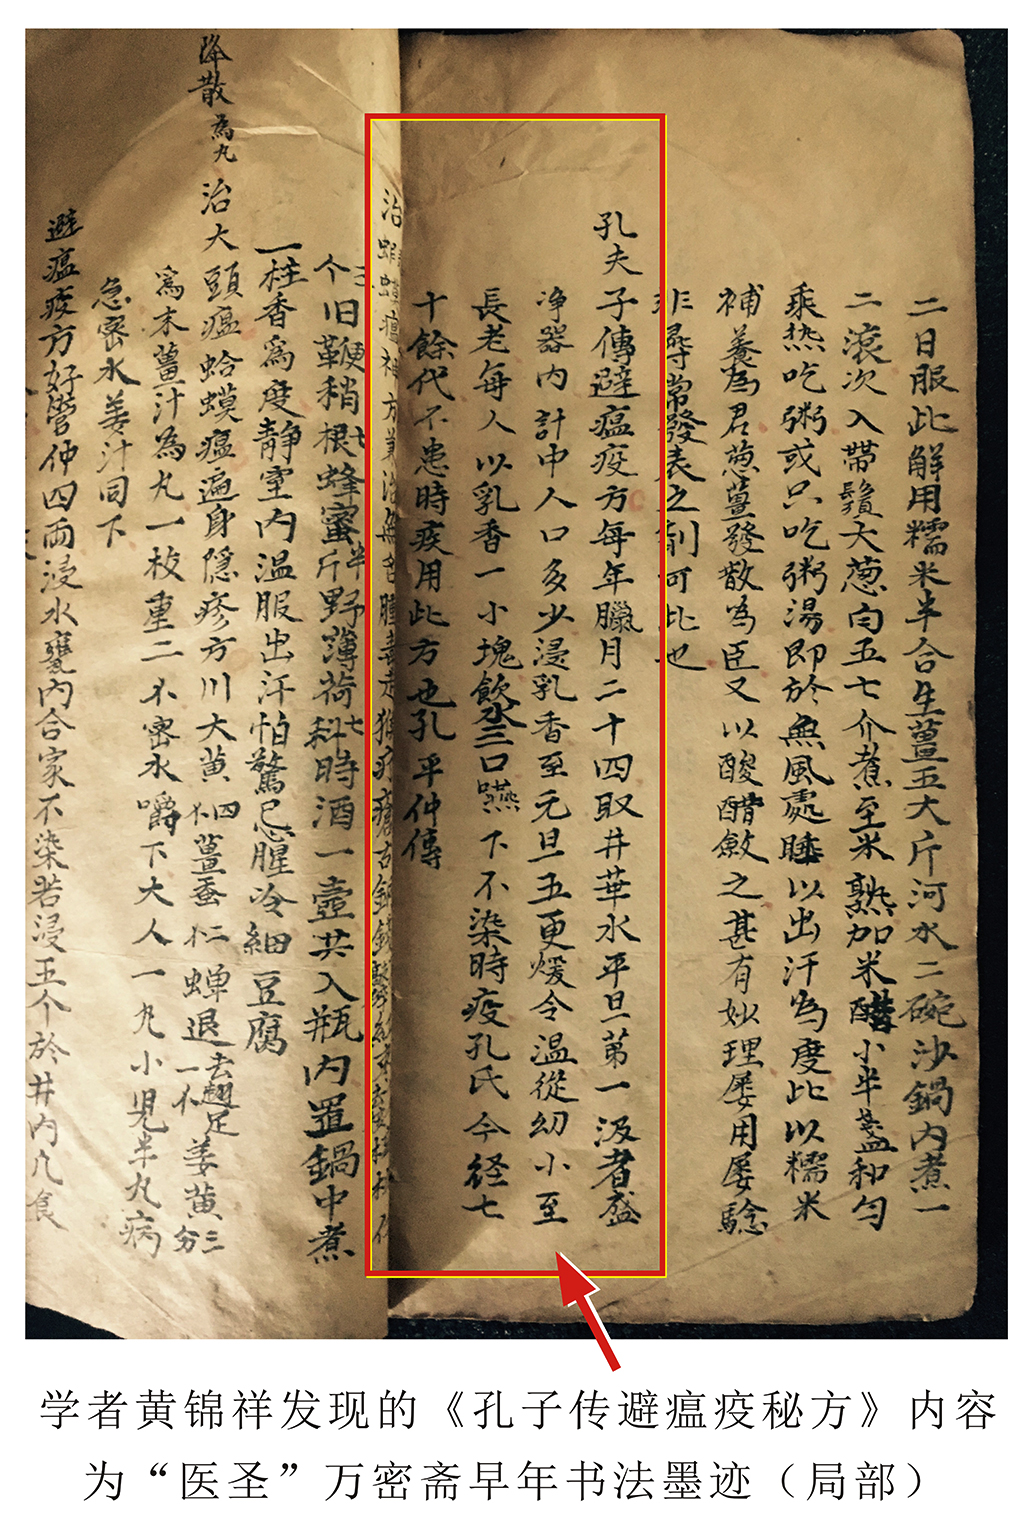 二日服此解用糯米半合生薑五大斤河水二碗沙鍋內煮一
二滚次入帶鬚大葱白五七介煮至米熟加米醋小半盞和勻
乘热吃粥或只吃粥湯即於無風處睡以出汗為度此以糯米
補養為君葱薑發散為臣又以酸醋斂之甚有妙理屡用屡驗
非尋常發表之劑可比也
孔夫子傳避瘟疫方每年臘月二十四取井華水平旦第一汲者盛
净器內計中人口多少浸乳香至元旦五更煖令温從幼小至
長老每人以乳香一小塊飲水三口嚥下不染時疫孔氏今径七
十餘代不患時疾用此方也孔平仲傳
治蝦蟆瘟神方兼治無名腫毒走
个旧鞭稍根七蜂蜜半斤野薄荷七科時酒一壺共入瓶內置鍋中煮
一柱香為度静室內温服出汗怕驚忌腥冷細豆腐
降散為丸治大頭瘟蛤蟆瘟遍身隱疹方川大黄四薑蚕仁蟬退去翅足一姜黄三分
為末薑汁為丸一枚重二不密水嚼下大人一丸小児半丸病
急密水姜汁同下
避瘟疫方好管仲四両浸水甕內合家不染若浸五个於井內凢食
学者黄锦祥发现的《孔子传避瘟疫秘方》内容
为“医圣”万密斋早年书法墨迹（局部）